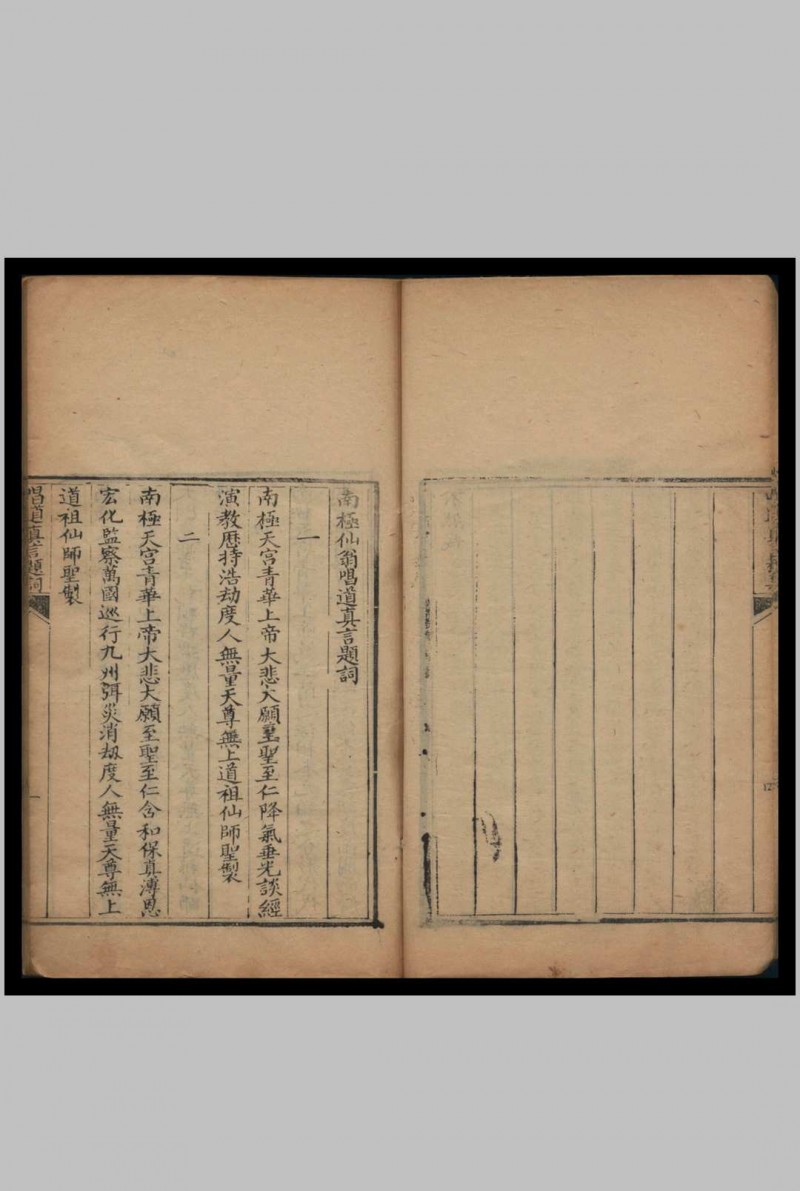 南極仙翁唱道真言題詞
一
南極天宮青華上帝大悲大願至聖至仁降氣垂光談經
演教歷持浩劫度人無量天尊無上道祖仙師聖製
二
南極天宮青華上帝大悲大願至聖至仁含和保真溥恩
宏化監察萬國巡行九州弭災消刼度人無量天尊無上
道祖仙師聖製
唱道真言題詞
一